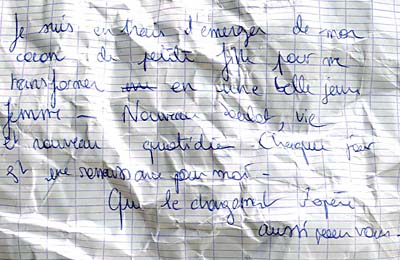 Je suis en train d'émerger de mon
cocon de petite fille pour me
transformer en une belle jeune
femme – Nouveau boulot, vie
et nouveau quotidien Chaque jour
est une renaissance pour moi –
Que le changement s'opère
aussi pour vous –